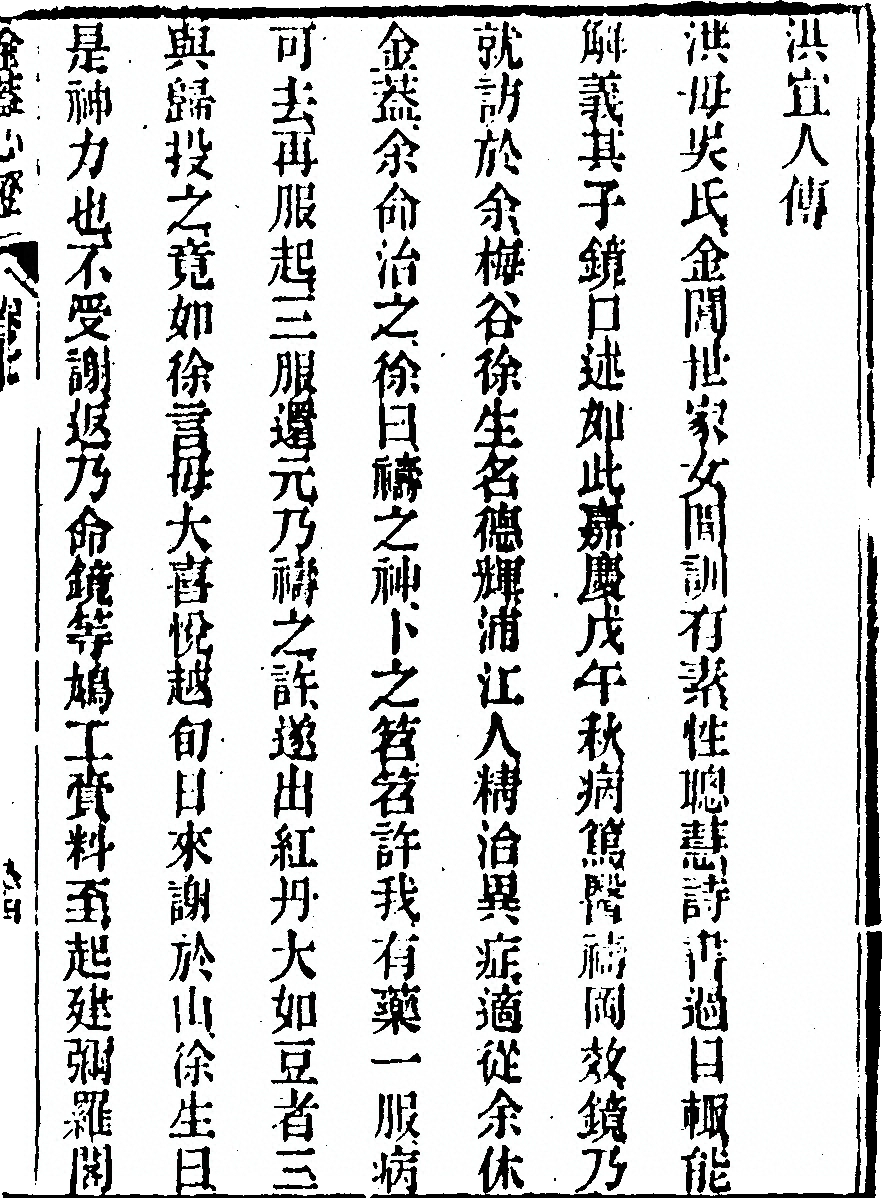 洪宜人傳
洪母吳氏金閶世家女閨訓有素性聰慧詩書過目輒能
解義其子鏡口述如此嘉慶戊午秋病篤醫禱罔效鏡乃
就訪於余梅谷徐生名德輝浦江人精治異症適從余休
金蓋余命治之徐曰禱之神卜之筶筶許我有藥一服病
可去再服起三服還元乃禱之許遂出紅丹大如豆者三
與歸投之竟如徐言母大喜悅越旬日來謝於山徐生曰
是神力也不受謝返乃命鏡等鳩工賫料至起建彌羅閣
金蓋心燈